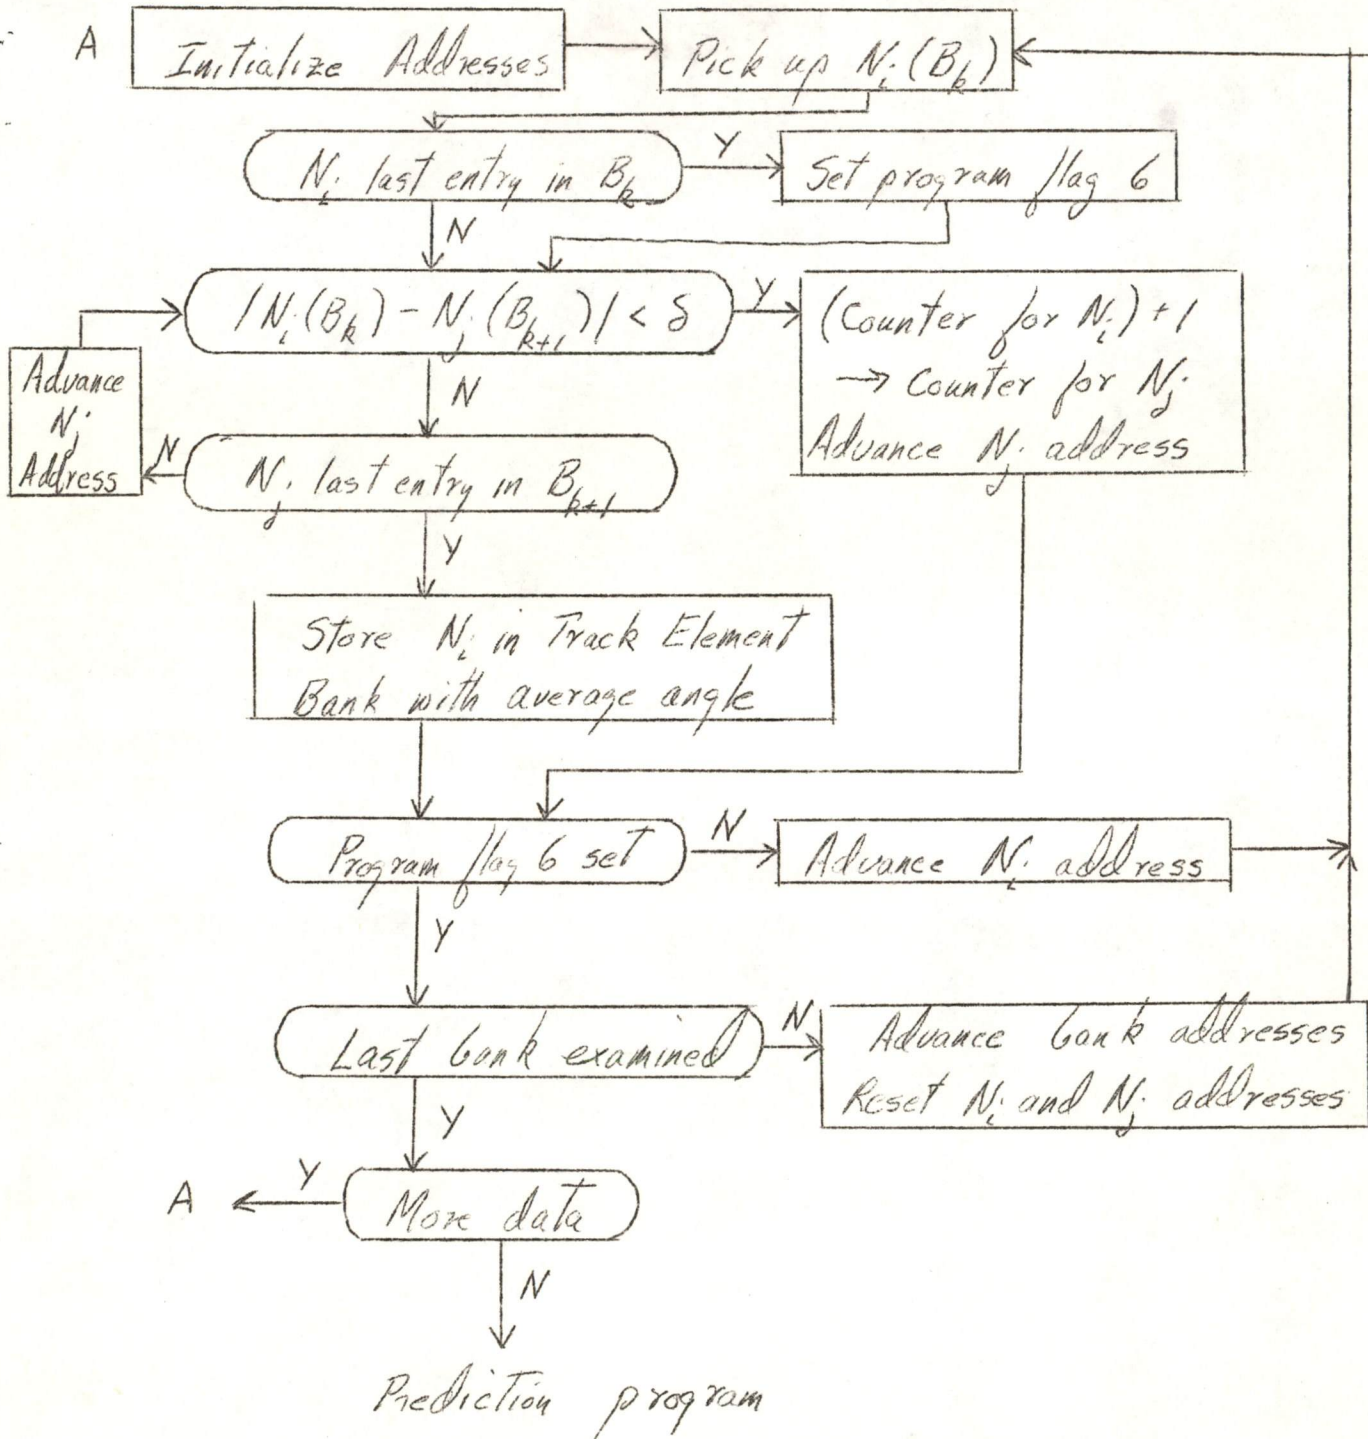 A
Initialize Addresses
Pick up N_i (B_k)
N_i last entry in B_k
Y
Set program flag 6
N
|N_i (B_k) - N_j (B_{k+1})| < δ
Y
(Counter for N_i) + 1
→ Counter for N_j
Advance N_j address
Advance
N_j
Address
N
N
N_j last entry in B_{k+1}
Y
Store N_i in Track Element
Bank with average angle
Program flag 6 set
N
Advance N_i address
Y
Last bank examined
N
Advance bank addresses
Reset N_i and N_j addresses
Y
A
Y
More data
N
Prediction program